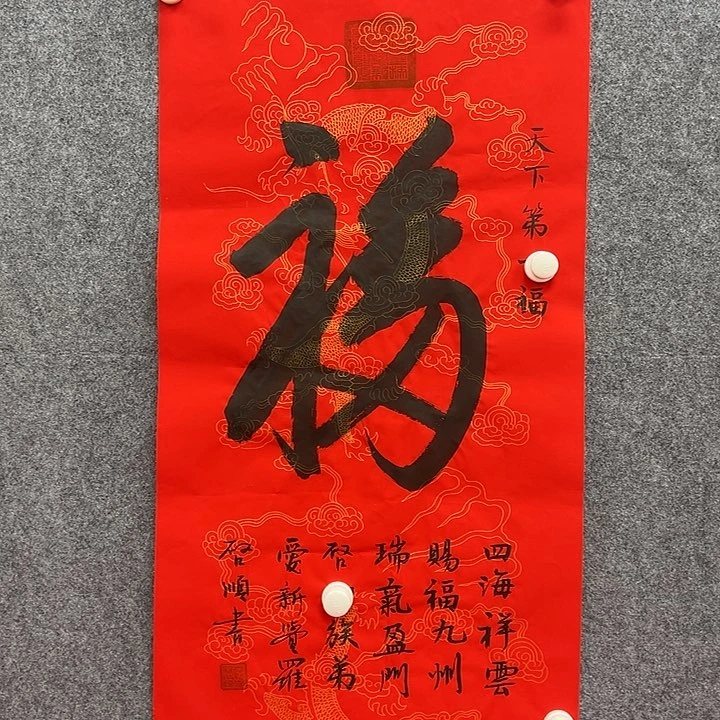 天下第一福
福
四海祥雲
賜福九州
瑞氣盈門
启 族弟
愛新覺羅
启順書